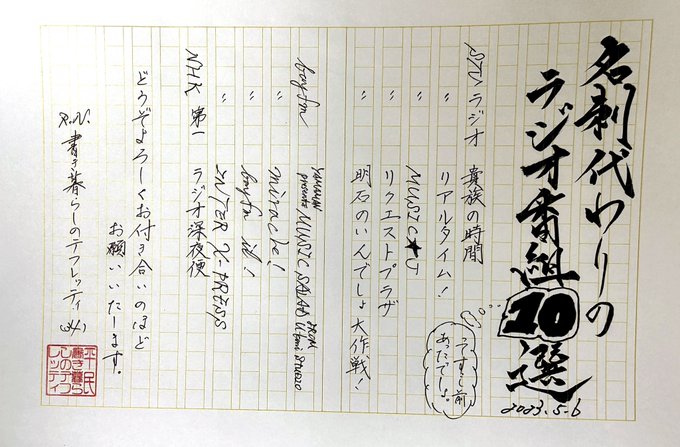 名刺代わりの
ラジオ番組10選
2023.5.6
STVラジオ 貴族の時間
〃 リアルタイム!
って、すこし前
あったでしょ。
〃 MUSIC★J
〃 リクエストプラザ
〃 明石のいんでしょ大作戦!
bayfm YAMANO presents MUSIC SALAD FROM U-bmi STUDIO
〃 miracle!
〃 bayfm it!
〃 INTER X-PRESS
NHK 第一 ラジオ深夜便
どうぞよろしくお付き合いのほど
お願いいたします。
R.N. 書き暮らしのテフレッティ
平民
書き暮ら
しのテフ
レッティ